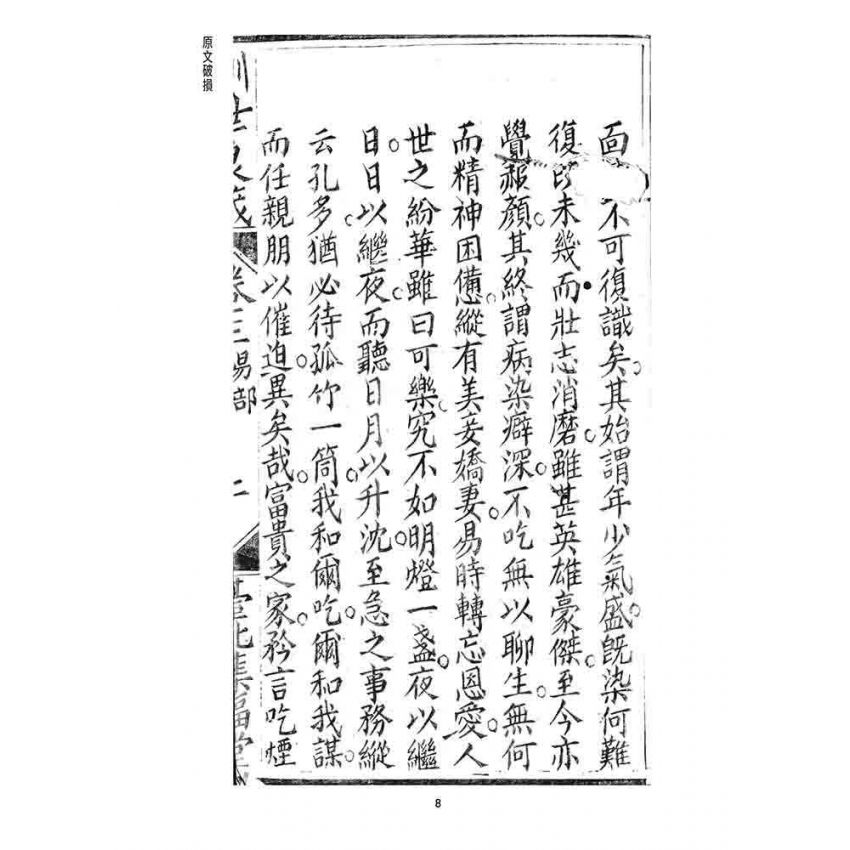 原文破損
面不可復識矣其始謂年少氣盛旣染何難
復卽未幾而壯志消磨雖甚英雄豪傑至今亦
覺赧顏其終謂病染癖深不吃無以聊生無何
而精神困憊縱有美妾嬌妻易時轉忘恩愛人
世之紛華雖曰可樂究不如明燈一盞夜以繼
日日以繼夜而聽日月以升沈至急之事務縱
云孔多猶必待孤竹一筒我和爾吃爾和我謀
而任親朋以催迫異矣哉富貴之家矜言吃煙
卷三 惕部 二 臺北集福堂
8